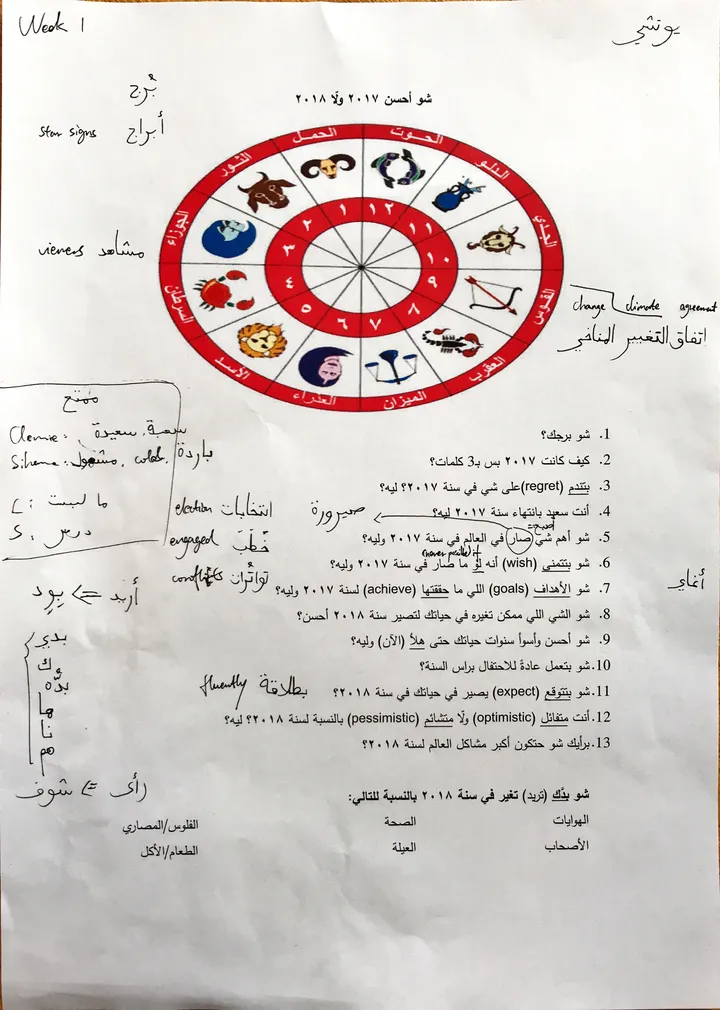 Week 1
يوتشي
بُرج
شو أحسن ٢٠١٧ ولّا ٢٠١٨
star signs أبراج
الحمل
الحوت
الدلو
الجدي
القوس
العقرب
الميزان
العذراء
الأسد
السرطان
الجوزاء
الثور
١
٢
٣
٤
٥
٦
٧
٨
٩
١٠
١١
١٢
viewers مشاهد
change climate agreement
اتفاق التغيير المناخي
ممتع
صعبة، سعيدة
باردة
ما لبست
درس
election انتخابات
صيرورة
engaged خَطَبَ
conflicts تواتُرات
أصبح
never posted it
1. شو برجك؟
2. كيف كانت ٢٠١٧ بس بـ3 كلمات؟
3. بتندم (regret) على شي في سنة ٢٠١٧؟ ليه؟
4. أنت سعيد بانتهاء سنة ٢٠١٧ ليه؟
5. شو أهم شي صار في العالم في سنة ٢٠١٧ وليه؟
6. شو بتتمنى (wish) أنه لو ما صار في سنة ٢٠١٧ وليه؟
7. شو الأهداف (goals) اللي ما حققتها (achieve) لسنة ٢٠١٧ وليه؟
8. شو الشي اللي ممكن تغيره في حياتك لتصير سنة ٢٠١٨ أحسن؟
9. شو أحسن وأسوأ سنوات حياتك حتى هلأ (الآن) وليه؟
10. شو بتعمل عادةً للاحتفال براس السنة؟
11. شو بتتوقع (expect) يصير في حياتك في سنة ٢٠١٨؟
12. أنت متفائل (optimistic) ولّا متشائم (pessimistic) بالنسبة لسنة ٢٠١٨؟ ليه؟
13. برأيك شو حتكون أكبر مشاكل العالم لسنة ٢٠١٨؟
fluently بطلاقة
أريد <= يود
بدي
ك
بدّه
ها
نا
هم
رأى <= شوف
شو بدّك (تريد) تغير في سنة ٢٠١٨ بالنسبة للتالي:
الهوايات الصحة الفلوس/المصاري
الأصحاب العيلة الطعام/الأكل